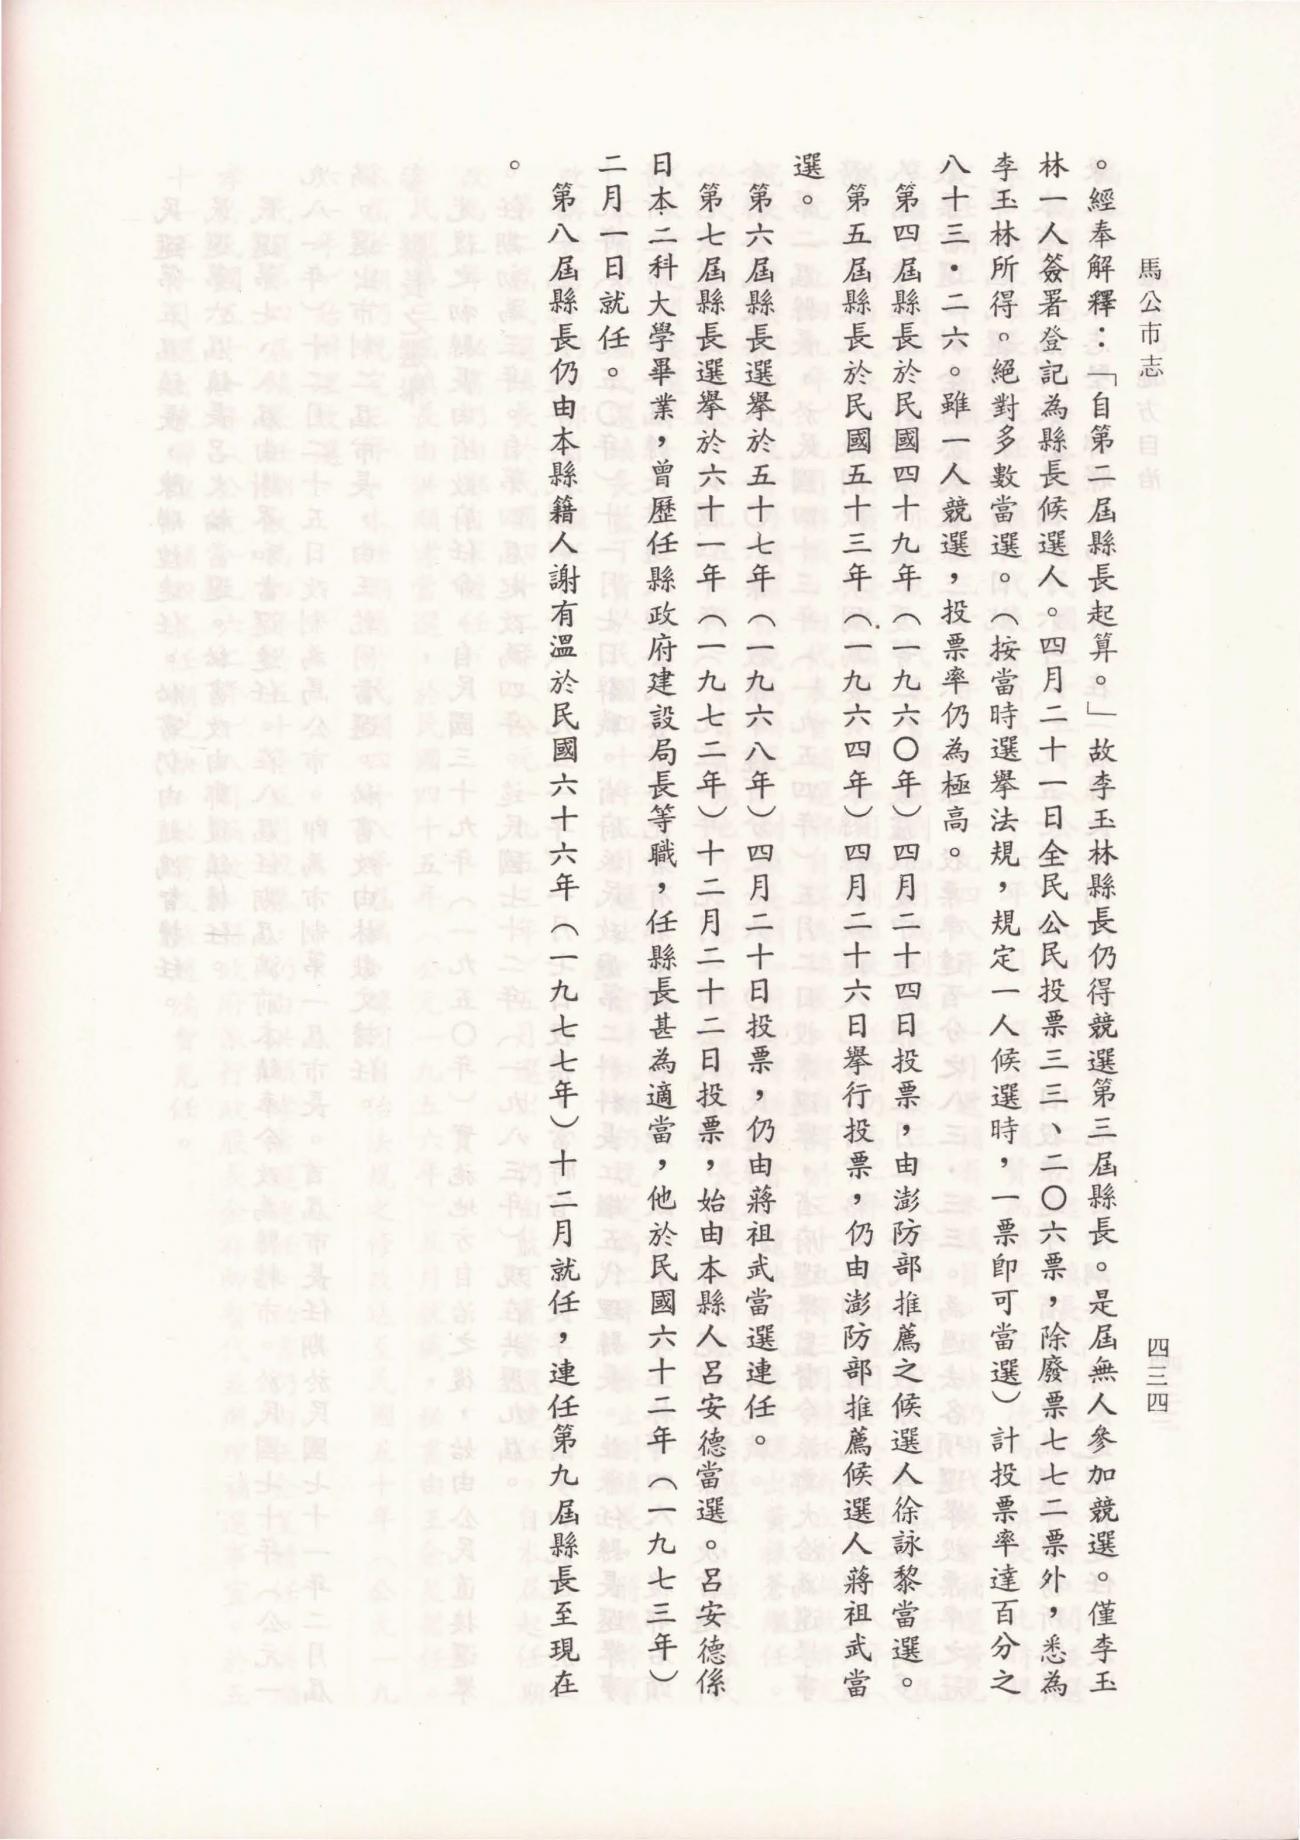 馬公市志
四三四
。經奉解釋：「自第二屆縣長起算。」故李玉林縣長仍得競選第三屆縣長。是屆無人參加競選。僅李玉
林一人簽署登記為縣長候選人。四月二十一日全民公民投票三三、二〇六票，除廢票七七二票外，悉為
李玉林所得。絕對多數當選。（按當時選舉法規，規定一人候選時，一票即可當選）計投票率達百分之
八十三・二六。雖一人競選，投票率仍為極高。
第四屆縣長於民國四十九年（一九六〇年）四月二十四日投票，由澎防部推薦之候選人徐詠黎當選。
第五屆縣長於民國五十三年（一九六四年）四月二十六日舉行投票，仍由澎防部推薦候選人蔣祖武當
選。
第六屆縣長選舉於五十七年（一九六八年）四月二十日投票，仍由蔣祖武當選連任。
第七屆縣長選舉於六十一年（一九七二年）十二月二十二日投票，始由本縣人呂安德當選。呂安德係
日本二科大學畢業，曾歷任縣政府建設局長等職，任縣長甚為適當，他於民國六十二年（一九七三年）
二月一日就任。
第八屆縣長仍由本縣籍人謝有溫於民國六十六年（一九七七年）十二月就任，連任第九屆縣長至現在
。